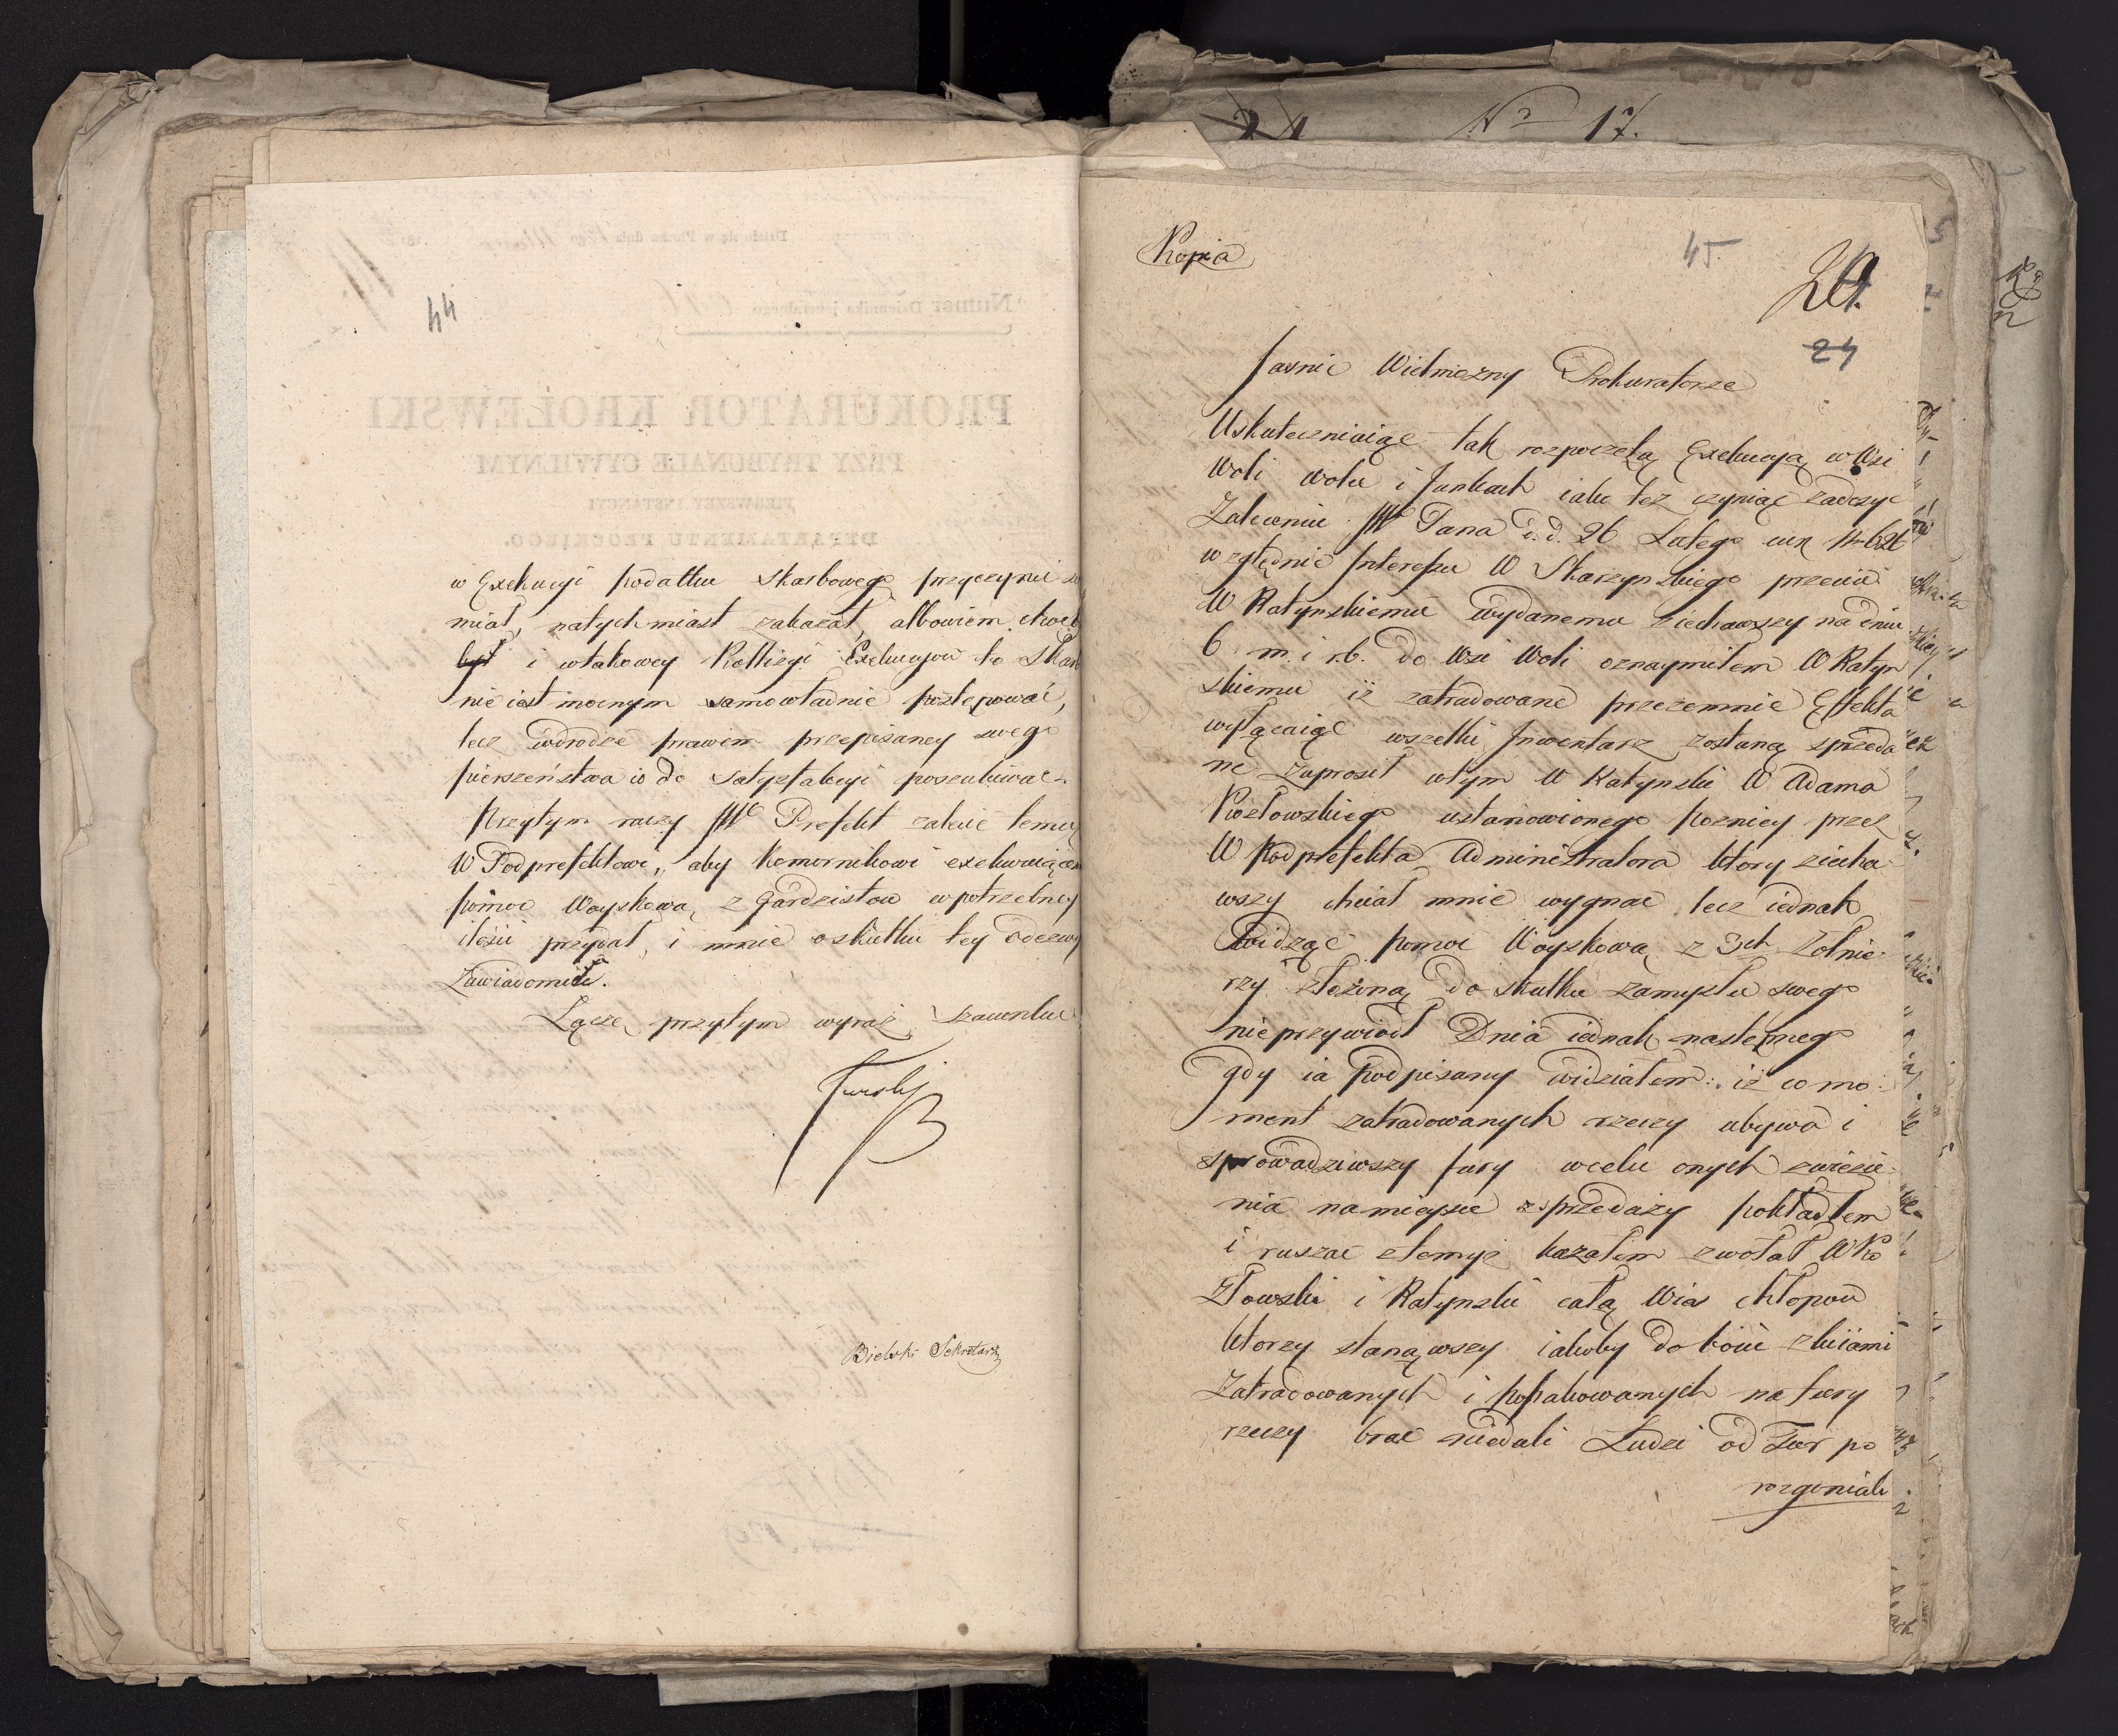 44
w Exekucyi podatku Skarbowego przyczynił się
miał, natychmiast zakazał, albowiem choćb
był i w takowey Kollizyi Exekucyow to Skar
nie iest mocnym samowładnie postępować,
lecz w drodze prawem przepisaney swego
pierszeństwa do Satysfakcyi poszukiwać.
Przytym raczy JW Prefekt zalecić temuż
W Podprefektowi, aby Komornikowi exekwuiącem
pomoc Woyskową z Gardzistow w potrzebney
ilości przydał, i mnie o skutku tey odezwy
zawiadomił.
Łączę przytym wyraz szacunku
Turski
Bielski Sekretarz
24 Nro 17.
Kopia
45
24
Jasnie Wielmozny Prokuratorze
Uskuteczniaiąc tak rozpoczętą Exekucyą w Wsi
Woli Wola i Junkach iako też czyniąc zadosyć
Zaleceniu JW Pana d. d. 26 Lutego
względnie Interessu W Skarzynskiego przeciw
W Ratynskiemu wydanemu ziechawszy na dniu
6 m. i r. b. do Wsi Woli oznaymiłem W Ratyn
skiemu iż zatradowane przezemnie Effekta
wyłącaiąc wszelki Inwentarz zostaną sprzeda
ne zaprosił w tym W Ratynski W Adama
Kozłowskiego ustanowionego pozniey przez
W Podprefekta Administratora ktory ziecha
wszy chciał mnie wygnac lecz iednak
widząc pomoc Woyskową z 3ch Zołnie
rzy złożoną do skutku zamysłu swego
nie przywiodł Dnia iednak nastepnego
gdy ia podpisany widziałem: iż co mo
ment zatradowanych rzeczy ubywa i
sprowadziwszy fury w celu onych zwiezie
nia na mieysce sprzedaży pokładłem
i ruszac z temiż kazałem zwołał W Ko
złowski i Ratynski całą Wies chłopow
ktorzy stanąwszy iakoby do boiu z kiiami
Zatradowanych i popakowanych na fury
rzeczy brac niedali Ludzi od Fur po
rozganiali